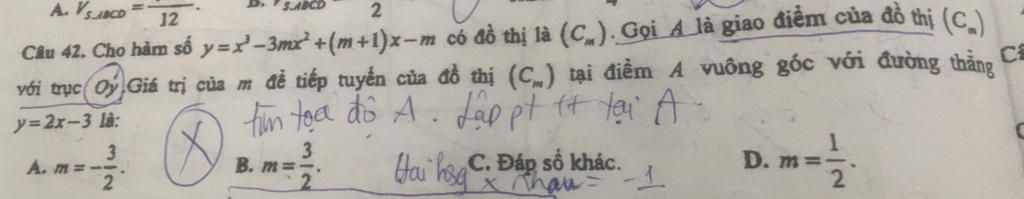 A. V_{S.ABCD} = \frac{}{12}. B. V_{S.ABCD} \frac{}{2}
Câu 42. Cho hàm số y = x³ - 3mx² + (m+1)x - m có đồ thị là (C_m). Gọi A là giao điểm của đồ thị (C_m)
với trục Oy. Giá trị của m để tiếp tuyến của đồ thị (C_m) tại điểm A vuông góc với đường thẳng
y = 2x - 3 là:
tìm tọa độ A. Lập pt tt tại A
A. m = -\frac{3}{2}. B. m = \frac{3}{2}. C. Đáp số khác. D. m = \frac{1}{2}.
Hai hsg x nhau = -1